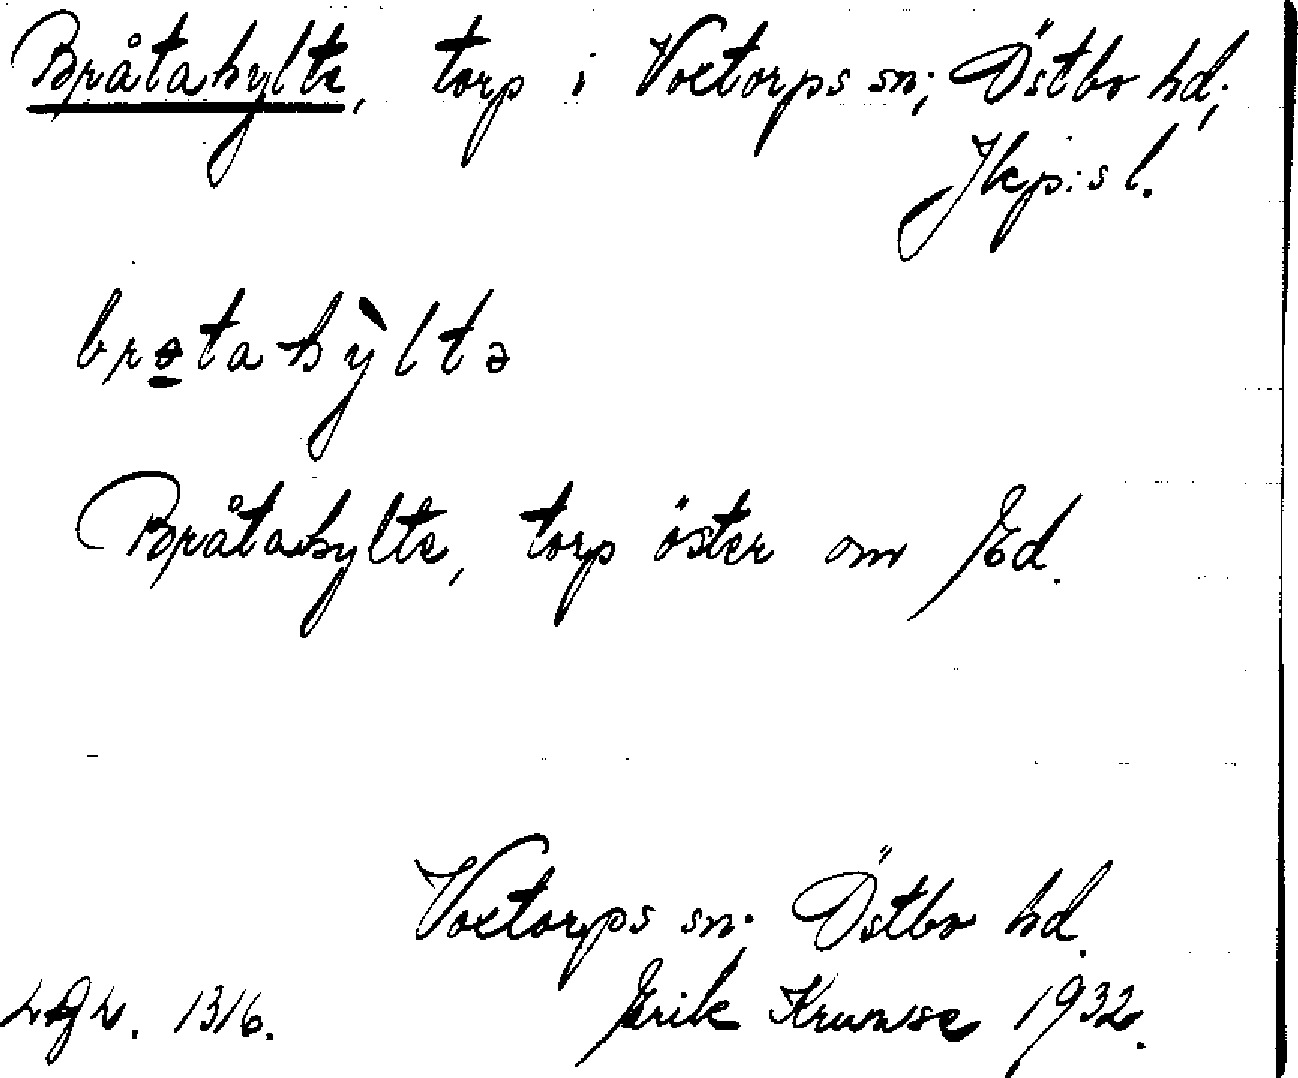 Bråtahylte, torp i Voxtorps sn; Östbo hd;
Jkp:s l.
brɵtahy̍ltə
Bråtahylte, torp öster om Ed.
Voxtorps sn; Östbo hd.
1316. Erik Krumse 1932.